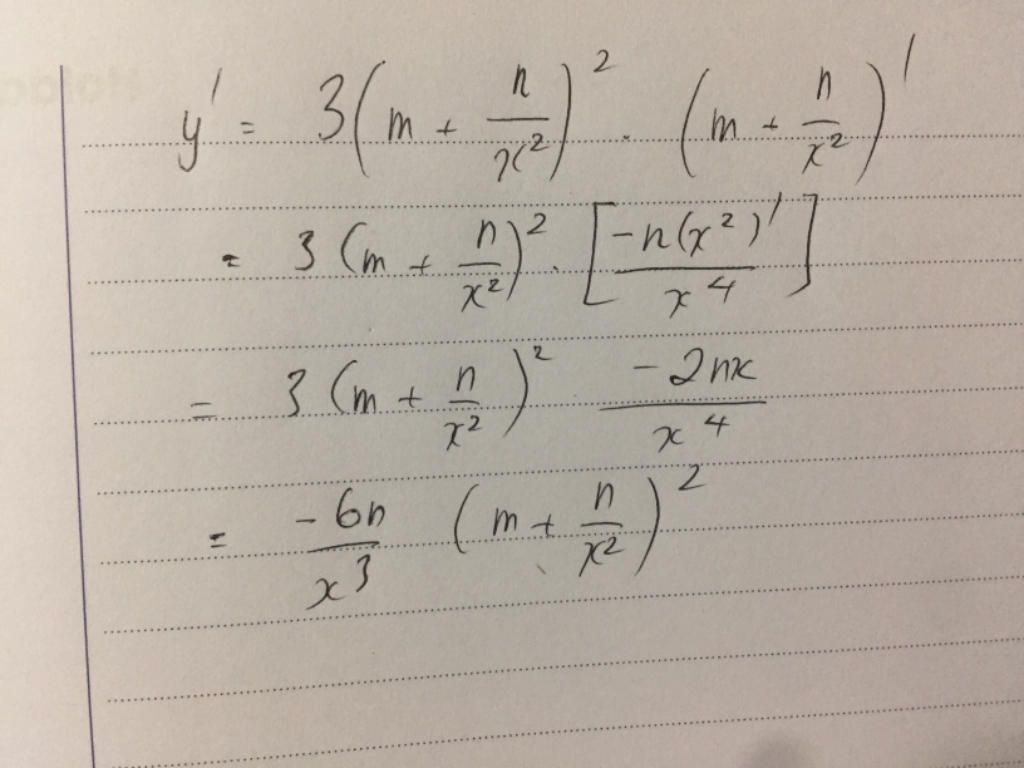 y' = 3(m + n/x²)² · (m + n/x²)'
= 3(m + n/x²)² · [-n(x²)'/x⁴]
= 3(m + n/x²)² -2nx/x⁴
= -6n/x³ (m + n/x²)²